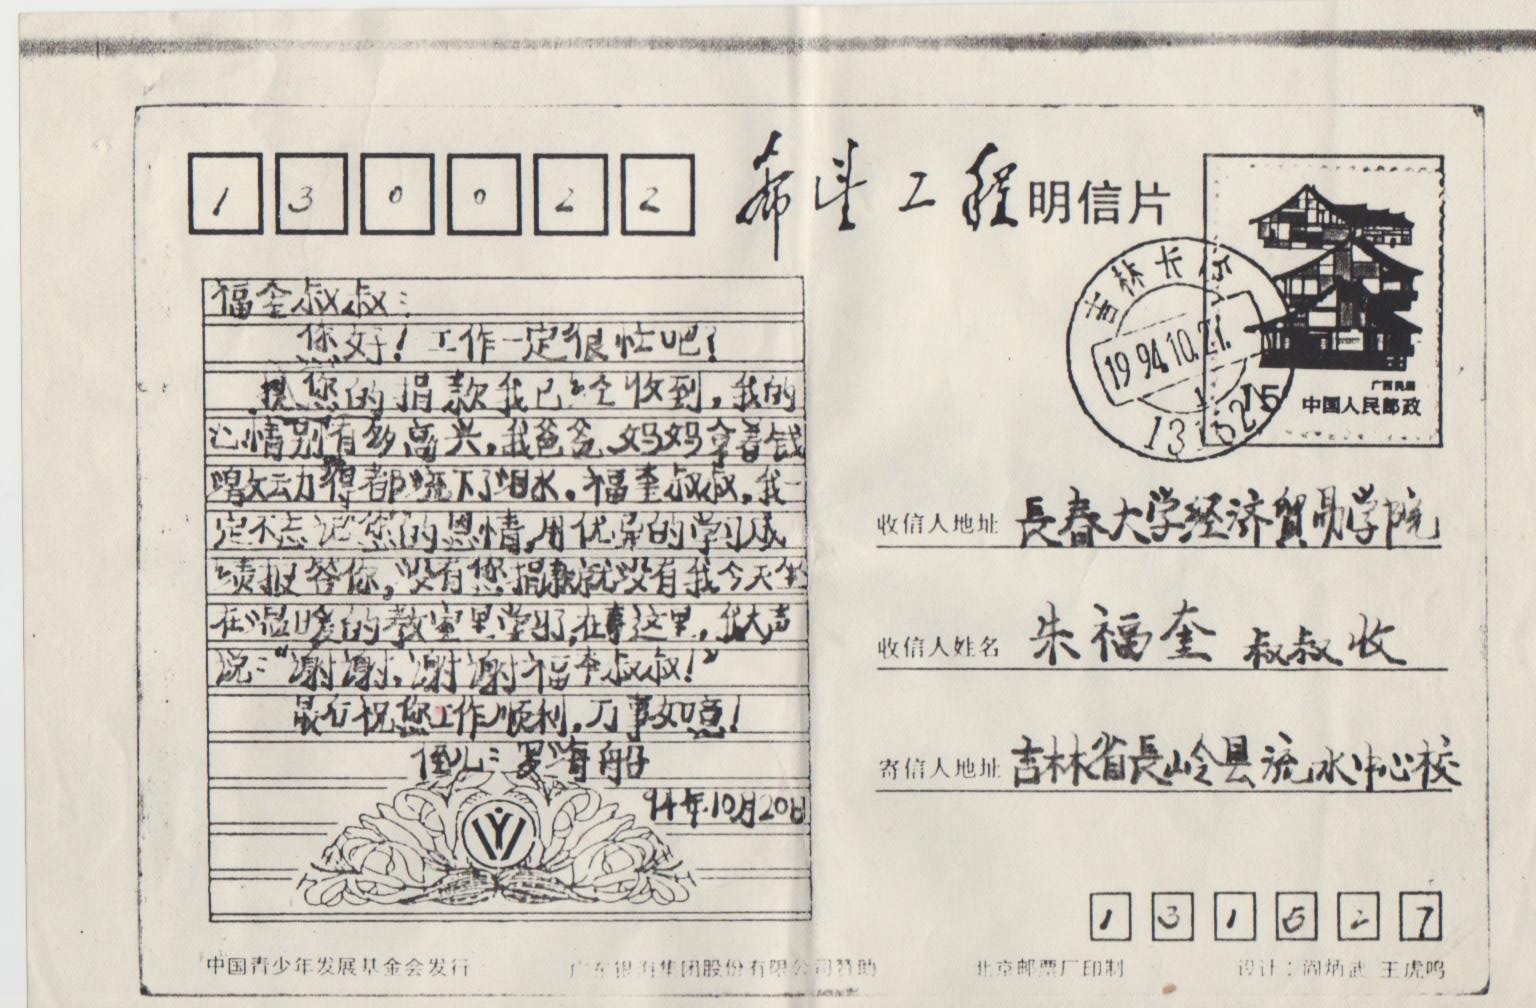 130022
希望工程明信片
吉林长岭
1994.10.21.
15
广西民居
中国人民邮政
福奎叔叔：
您好！工作一定很忙吧！
您的捐款我已经收到，我的
心情别有多高兴，我爸爸、妈妈拿着钱
激动得都流下了泪水。福奎叔叔，我一
定不忘记您的恩情，用优异的学习成
绩报答你，没有您捐款就没有我今天坐
在温暖的教室里学习，在这里，我大声
说：“谢谢，谢谢福奎叔叔！”
最后祝您工作顺利，万事如意！
侄儿：罗海船
94年10月20日
收信人地址 長春大学经济贸易学院
收信人姓名 朱福奎 叔叔收
寄信人地址 吉林省長岭县流水中心校
131527
中国青少年发展基金会发行
广东银海集团股份有限公司赞助
北京邮票厂印制
设计：阎炳武 王虎鸣